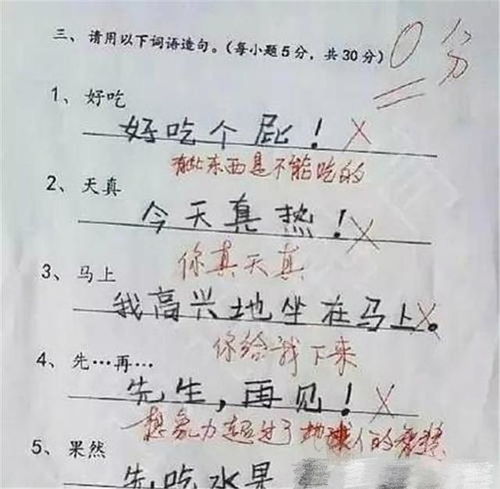 三、请用以下词语造句。(每小题5分，共30分) 0分
1、好吃
好吃个屁！
有些东西是不能吃的
2、天真
今天真热！
你真天真
3、马上
我高兴地坐在马上。
你给我下来
4、先…再…
先生，再见！
想象力超过了地球人的智慧
5、果然
先吃水果